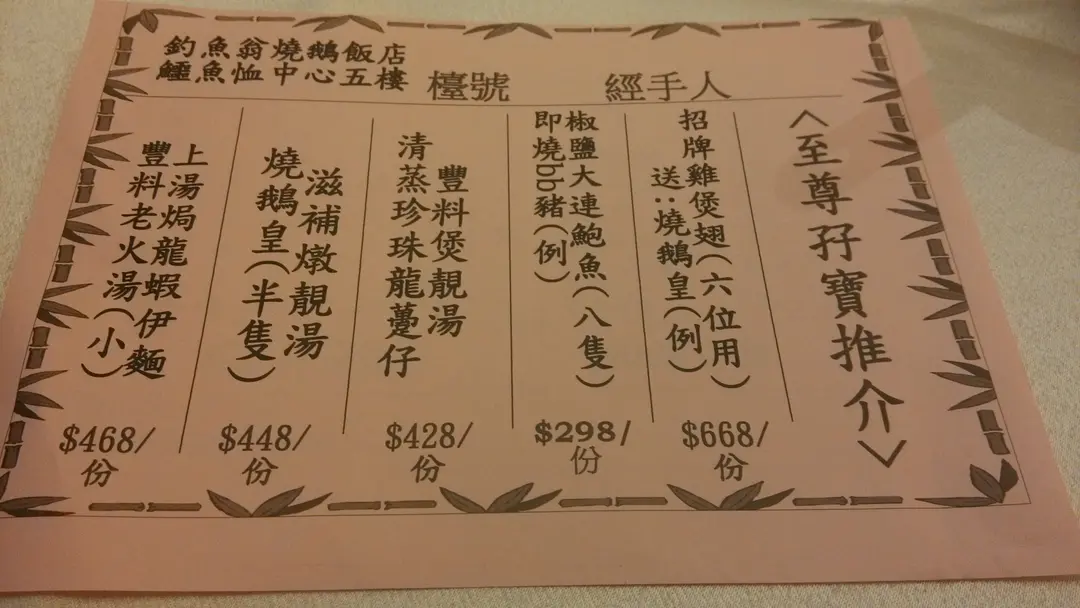 釣魚翁燒鵝飯店
鱷魚恤中心五樓
檯號 經手人
<至尊孖寶推介>
招牌雞煲翅(六位用)
送:燒鵝皇(例)
$668/份
椒鹽大連鮑魚(八隻)
即燒bb豬(例)
$298/份
豐料煲靚湯
清蒸珍珠龍躉仔
$428/份
滋補燉靚湯
燒鵝皇(半隻)
$448/份
上湯焗龍蝦伊麵
豐料老火湯(小)
$468/份